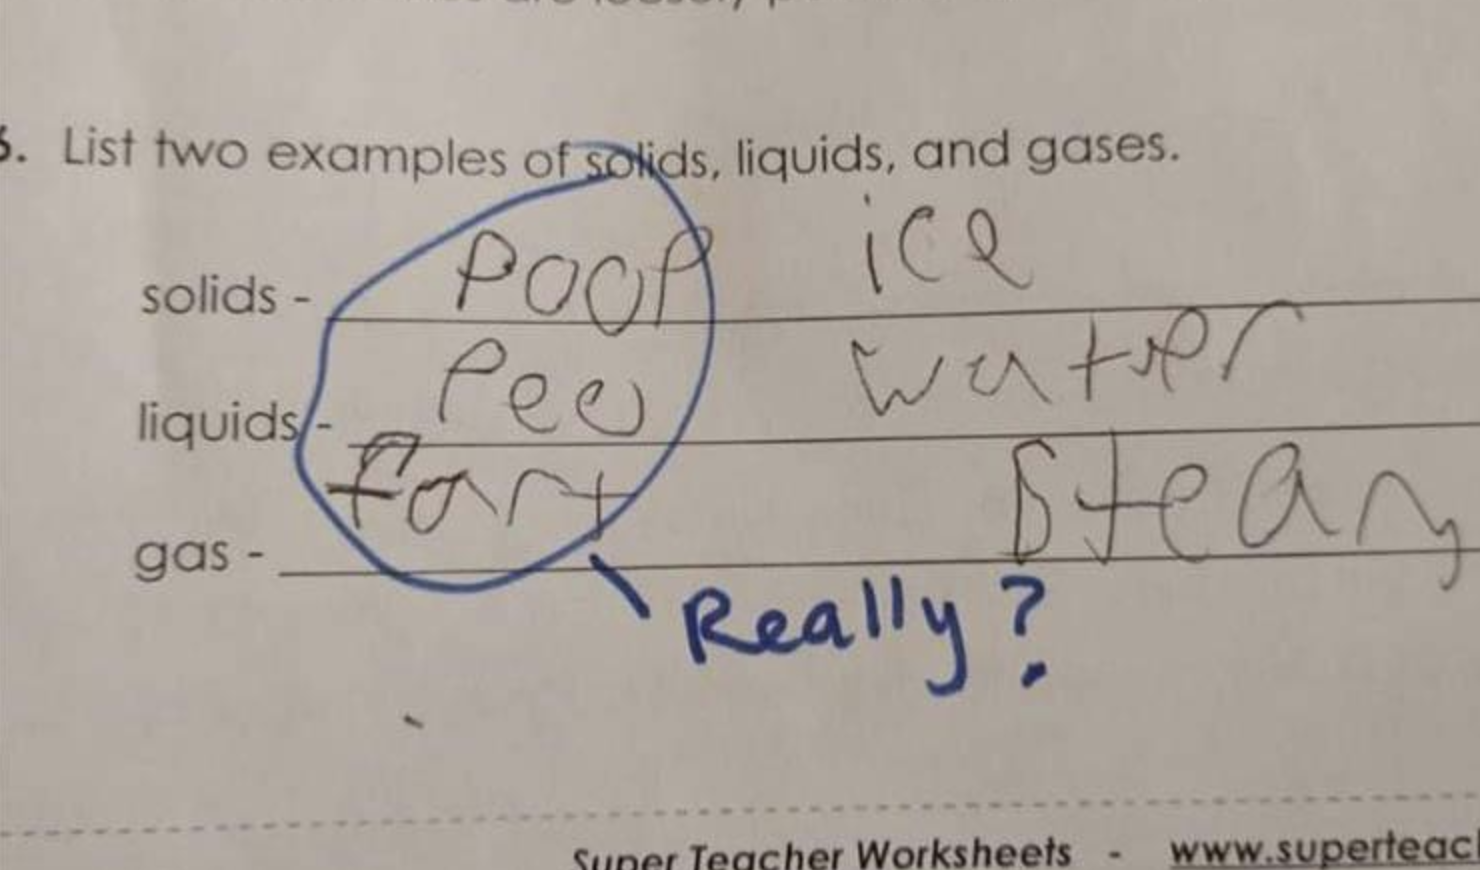 6. List two examples of solids, liquids, and gases.
solids - Poop ice
liquids - Pee water
gas - fart Steam
Really?
Super Teacher Worksheets - www.superteach